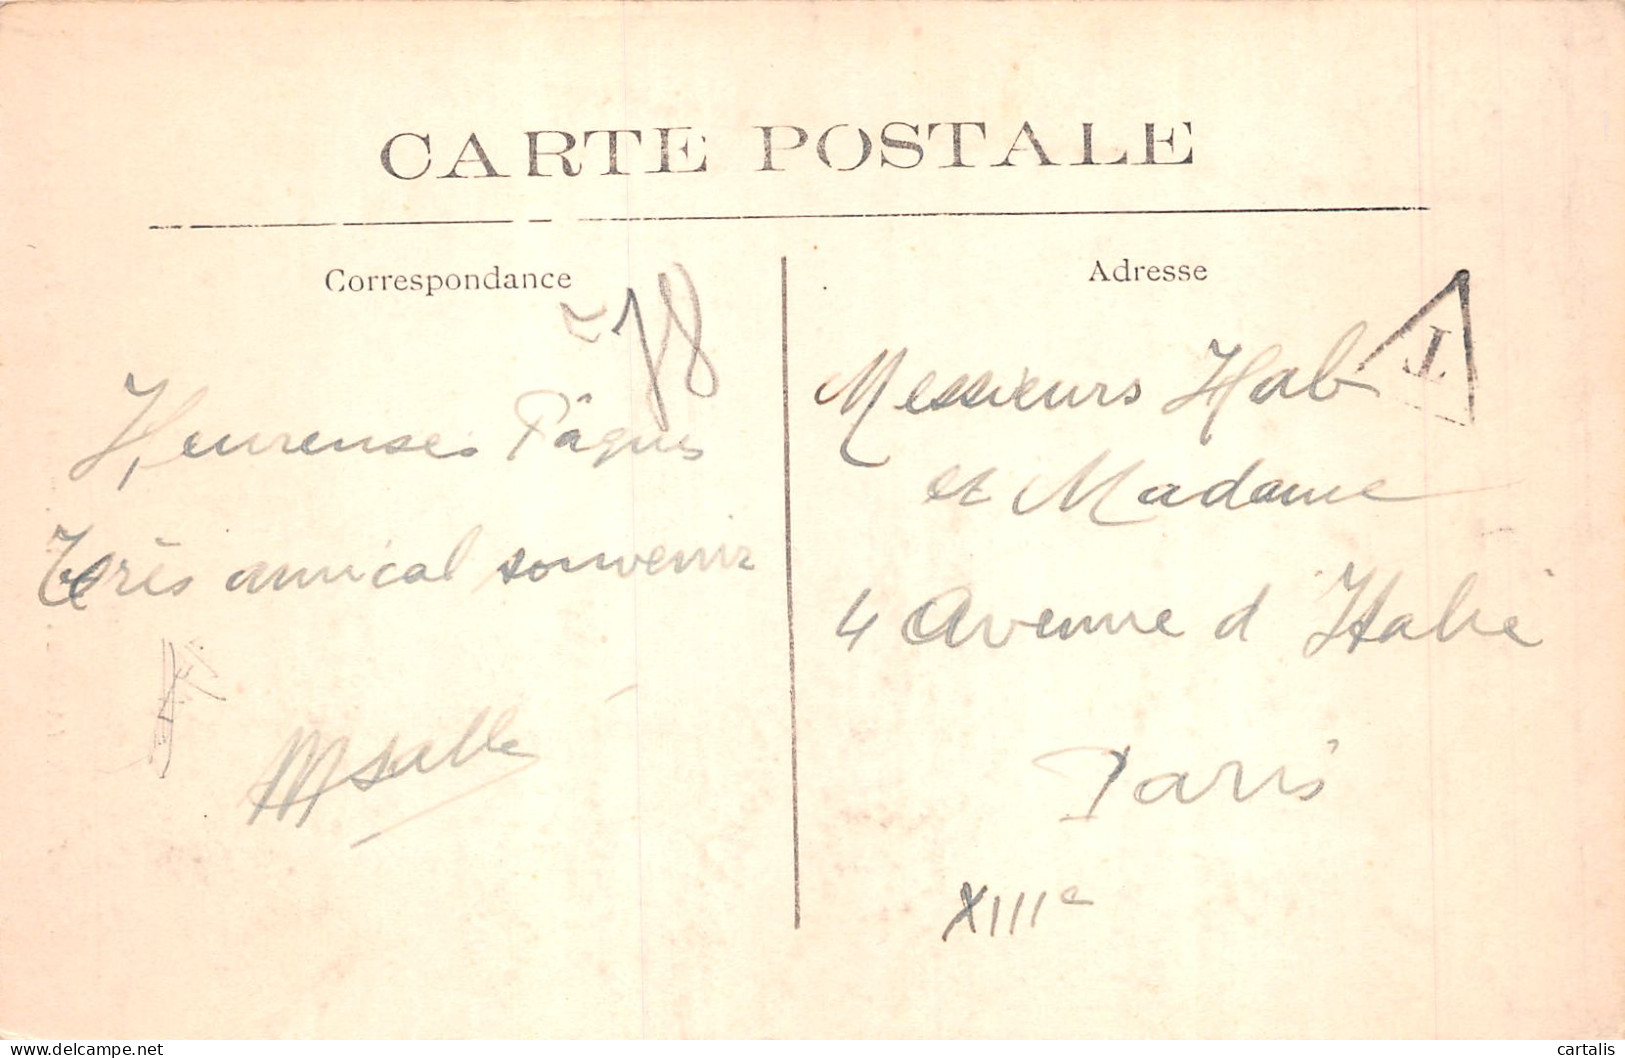 CARTE POSTALE
Correspondance
78
Heureuses Pâques
Très amical souvenir
Adresse
T
Messieurs Hab
et Madame
4 Avenue d'Italie
Paris
XIIIe
delcampe.net
cartalis